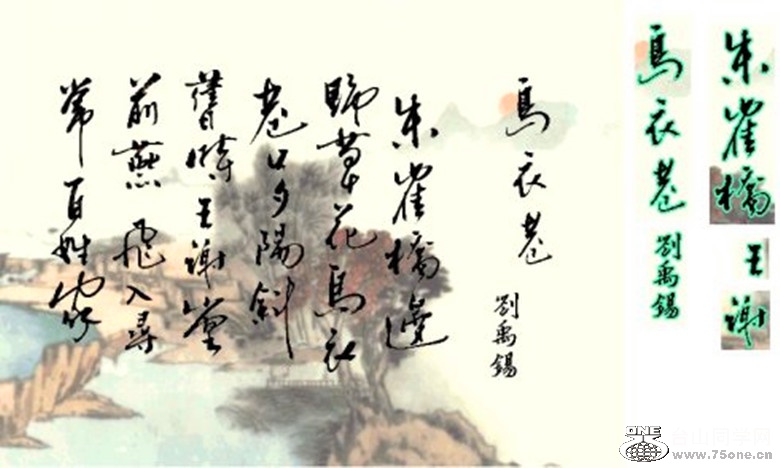 烏衣巷
劉禹錫
朱雀橋邊
野草花烏衣
巷口夕陽斜
舊時王謝堂
前燕飛入尋
常百姓家
朱雀橋
王謝
烏衣巷
劉禹錫
ONE
www.75one.cn